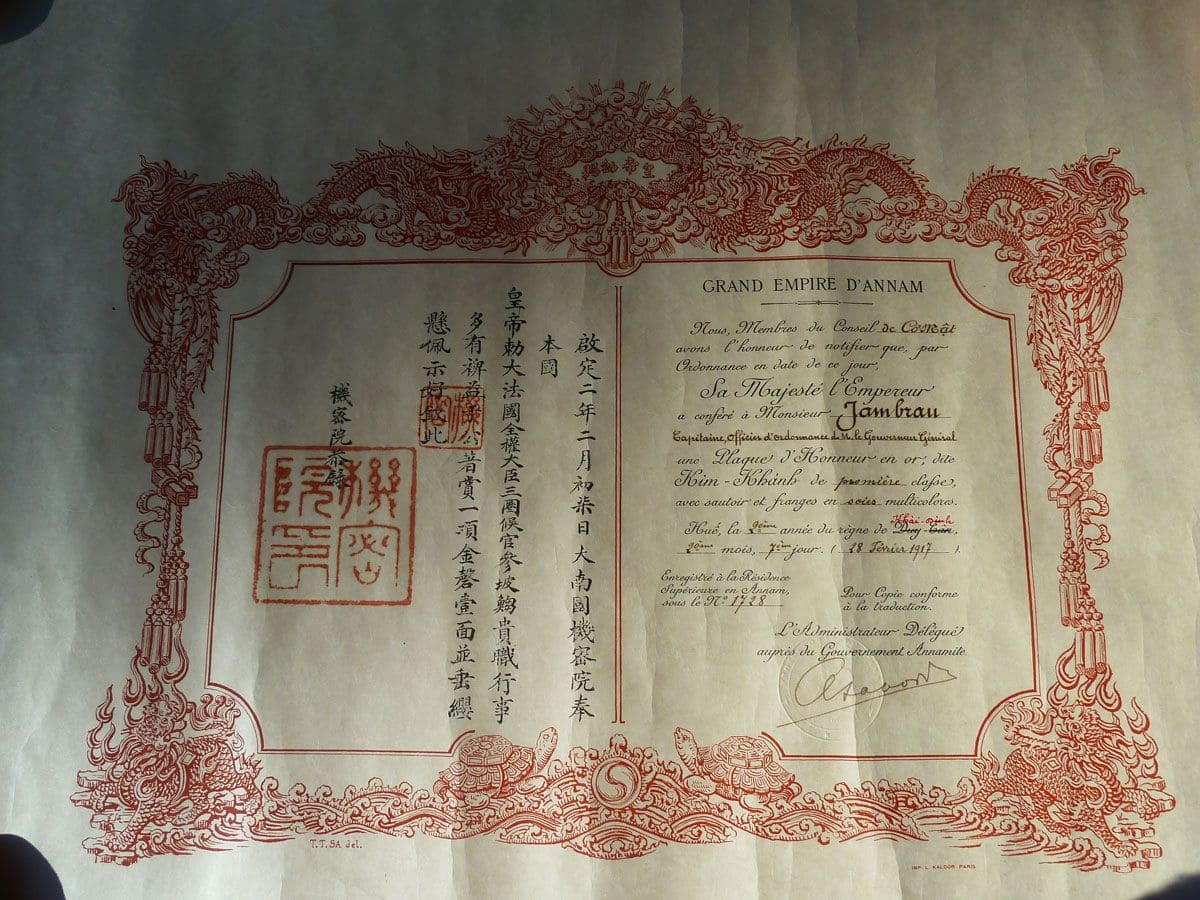 皇帝勅
啟定二年二月初柒日大南國機密院奉
本國
皇帝勅大法國全權大臣三圈候官參坡貴職行事
多有裨益公著賞一項金磬壹面並垂纓
懸佩示好此
機密院恭錄
機密院印
GRAND EMPIRE D'ANNAM
Nous, Membres du Conseil de Cơ Mật
avons l'honneur de notifier que, par
Ordonnance en date de ce jour,
Sa Majesté l'Empereur
a conféré à Monsieur Jambrau
Capitaine, Officier d'ordonnance de M. le Gouverneur Général
une Plaque d'Honneur en or, dite
Kim-Khánh de première classe,
avec sautoir et franges en soies multicolores.
Khải-Định
Huế, la 2ème année du règne de Duy-Tân,
2ème mois, 7ème jour. ( 28 Février 1917 ).
Enregistré à la Résidence
Supérieure en Annam,
sous le No 1728
Pour Copie conforme
à la traduction.
L'Administrateur Délégué
auprès du Gouvernement Annamite
T.T. SA del.
IMP. L. KALDOR PARIS